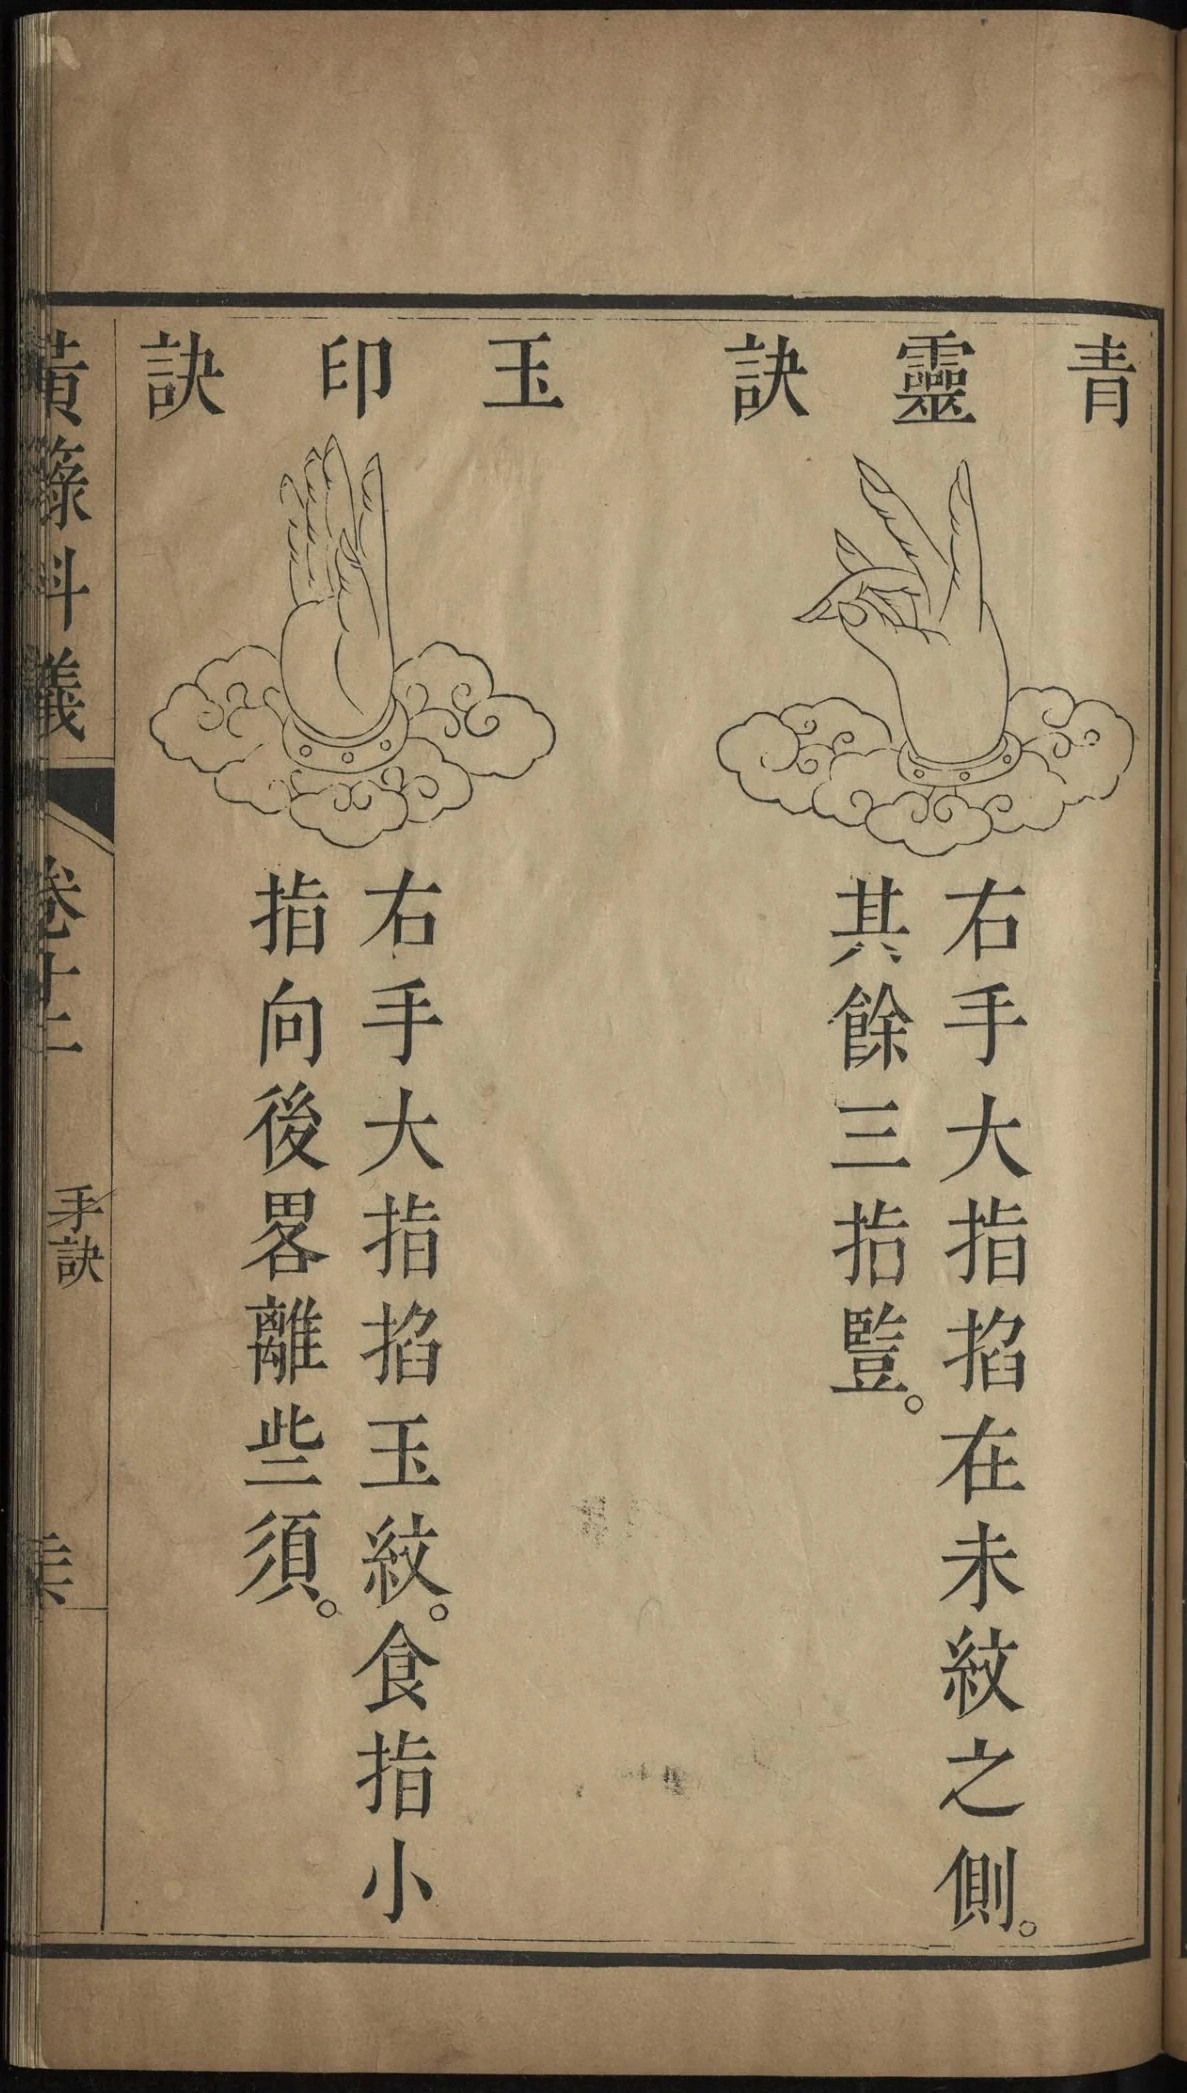 青靈訣
右手大指掐在未紋之側。
其餘三指豎。
玉印訣
右手大指掐玉紋。食指小
指向後畧離些須。
黃籙科儀
卷十二
手訣